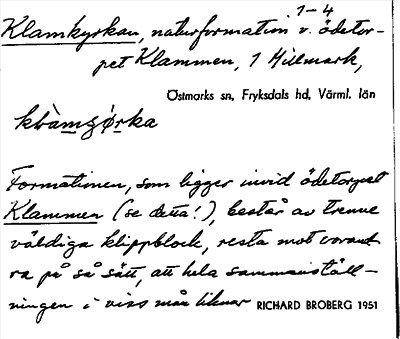 1-4
Klamkyrkan, naturformation v. ödetor-
pet Klammen, 1 Millmark,
Östmarks sn, Fryksdals hd, Värml. län
Formationen, som ligger invid ödetorpet
Klammen (se detta!), består av trenne
väldiga klippblock, resta mot varand-
ra på så sätt, att hela sammanställ-
ningen i viss mån liknar RICHARD BROBERG 1951